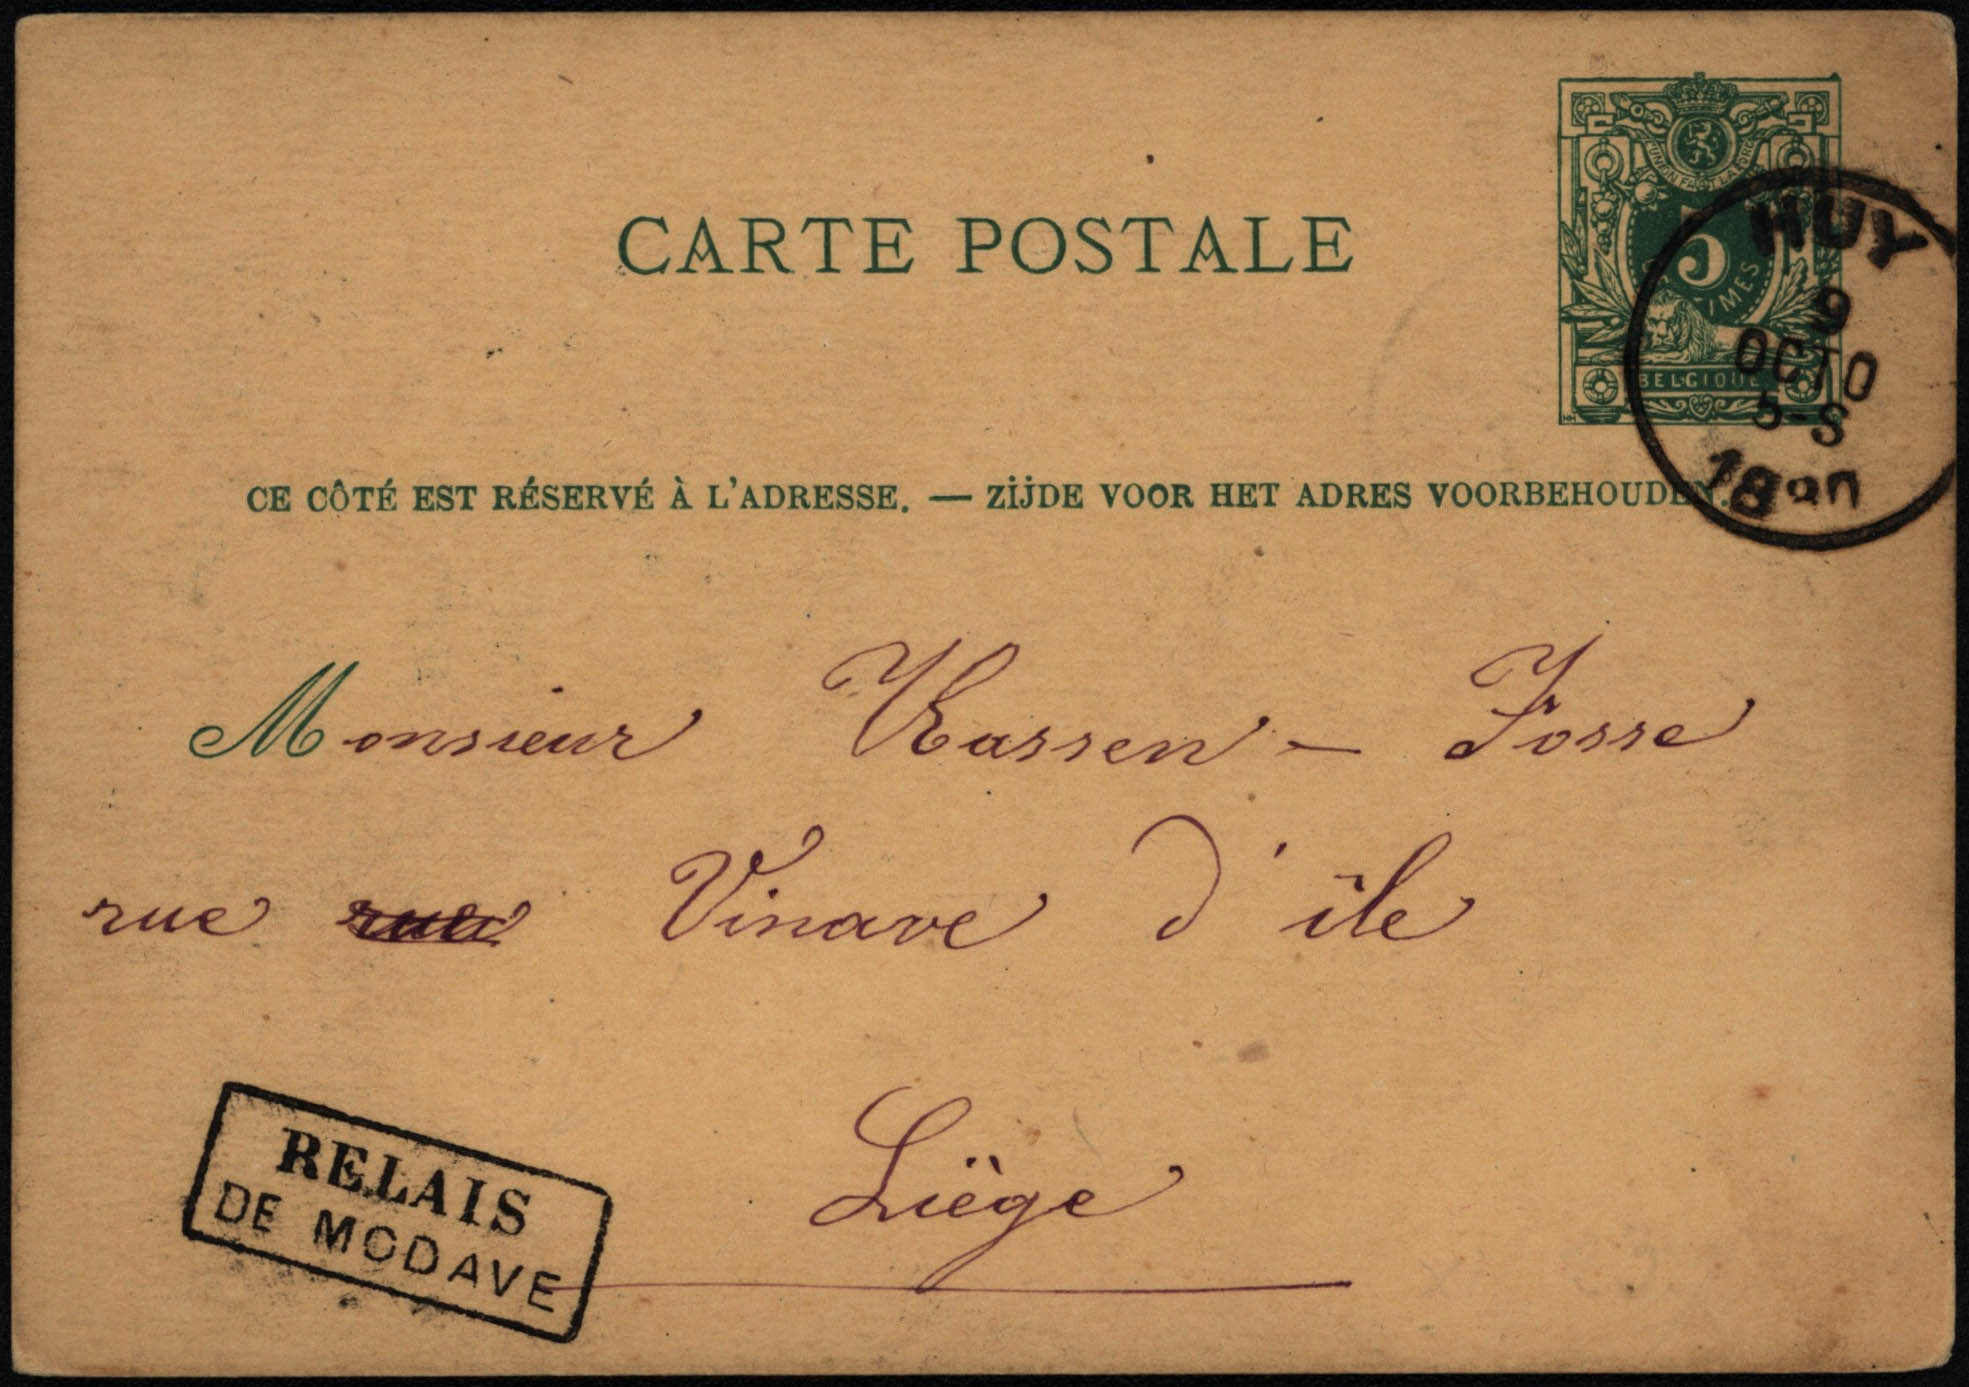 CARTE POSTALE
L'UNION FAIT LA FORCE
5
BELGIQUE
HUY
9
OCTO
5-S
1890
CE CÔTÉ EST RÉSERVÉ À L'ADRESSE. — ZIJDE VOOR HET ADRES VOORBEHOUDEN.
Monsieur Kassen - Fosse
rue Vinave d'île
Liège
RELAIS
DE MODAVE